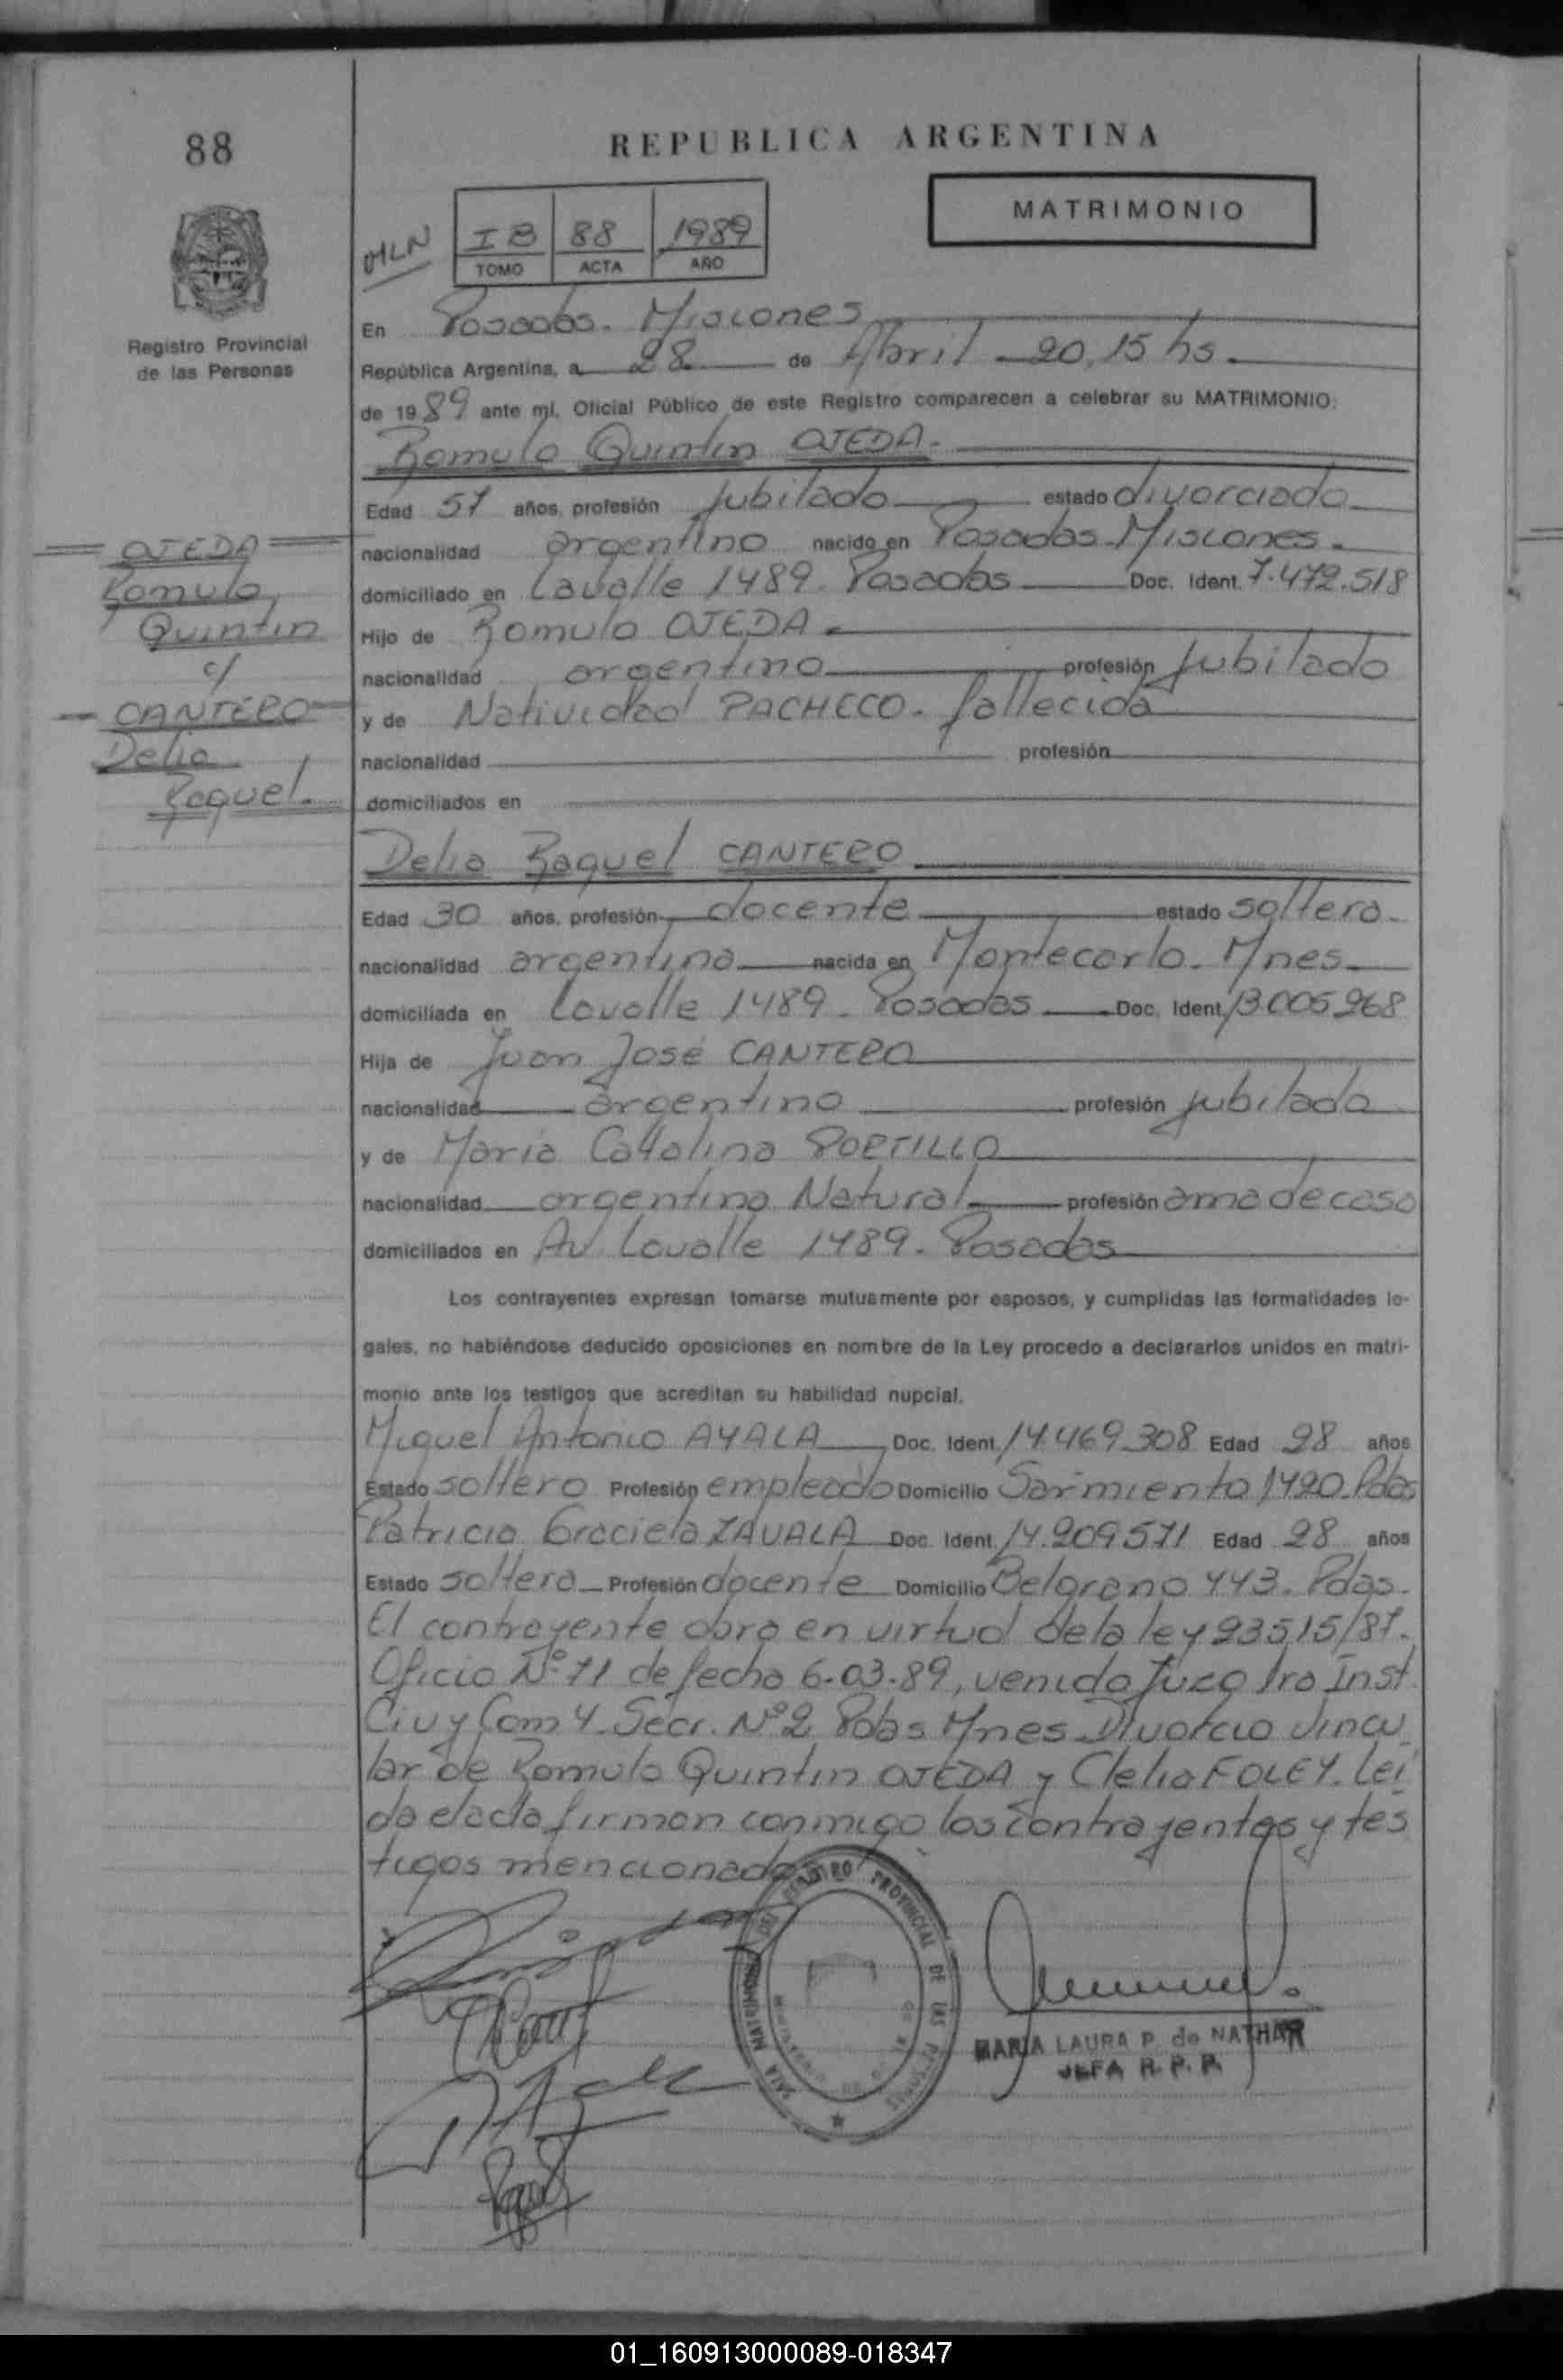 88
REPUBLICA ARGENTINA
MATRIMONIO
MLN
IB 88 1989
TOMO ACTA AÑO
Registro Provincial
de las Personas
En Posadas. Misiones
República Argentina, a 28 de Abril - 20,15 hs.
de 1989 ante mí, Oficial Público de este Registro comparecen a celebrar su MATRIMONIO:
Romulo Quintin OJEDA.
Edad 57 años, profesión jubilado estado divorciado
nacionalidad argentino nacido en Posadas-Misiones.
domiciliado en Lavalle 1489. Posadas Doc. Ident. 7.472.518
Hijo de Romulo OJEDA.
nacionalidad argentino profesión jubilado
y de Natividad PACHECO. fallecida
nacionalidad profesión
domiciliados en
OJEDA
Romulo
Quintin
c/
CANTERO
Delia
Raquel.
Delia Raquel CANTERO
Edad 30 años, profesión docente estado soltera.
nacionalidad argentina nacida en Montecarlo. Mnes.
domiciliada en Lavalle 1489. Posadas Doc. Ident. 13.005.968
Hija de Juan José CANTERO
nacionalidad argentino profesión jubilado
y de Maria Catalina PORTILLO
nacionalidad argentina Natural profesión ama de casa
domiciliados en Av Lavalle 1489. Posadas
Los contrayentes expresan tomarse mutuamente por esposos, y cumplidas las formalidades le-
gales, no habiéndose deducido oposiciones en nombre de la Ley procedo a declararlos unidos en matri-
monio ante los testigos que acreditan su habilidad nupcial.
Miguel Antonio AYALA Doc. Ident. 14.469.308 Edad 28 años
Estado soltero Profesión empleado Domicilio Sarmiento 1420. Pdas
Patricia Graciela ZAVALA Doc. Ident. 14.209571 Edad 28 años
Estado soltera Profesión docente Domicilio Belgrano 443. Pdas.
El contrayente obra en virtud de la ley 23515/87.
Oficio Nº 71 de fecha 6-03-89, venido Juzg 1ra Inst
Civ y Com 4. Secr. Nº 2 Pdas Mnes. Divorcio vincu
lar de Romulo Quintin OJEDA y Clelia FOLEY. Leí
da el acta firman conmigo los contrayentes y tes
tigos mencionados
REGISTRO PROVINCIAL DE LAS PERSONAS
MARIA LAURA P. de NATHAR
JEFA R. P. P.
01_160913000089-018347